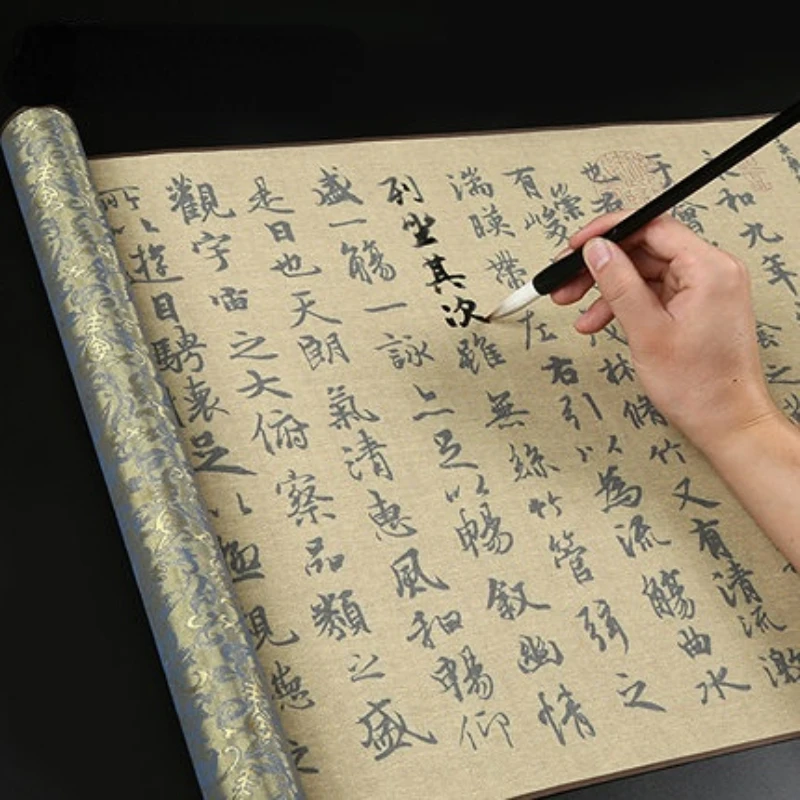 永和九年
于會
也
有崇山峻茂林脩竹又有清流激
湍暎帶左右引以為流觴曲水
列坐其次雖無絲竹管弦之
盛一觴一詠亦足以暢敘幽情
是日也天朗氣清惠風和暢仰
觀宇宙之大俯察品類之盛
所以遊目騁懷足以極視聽之